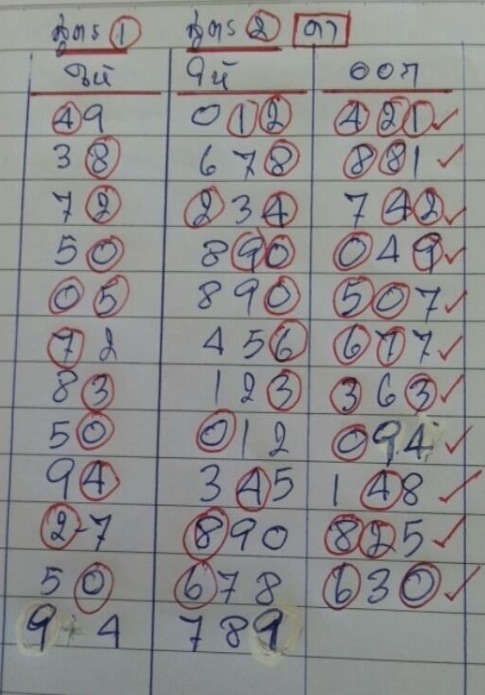 สูตร 1 สูตร 2 ตา
ให้ ให้ ออก
49 012 421 ✓
38 678 881 ✓
72 234 742 ✓
50 890 049 ✓
05 890 507 ✓
72 456 677 ✓
83 123 363 ✓
50 012 094 ✓
94 345 148 ✓
2-7 890 825 ✓
50 678 630 ✓
9-4 789